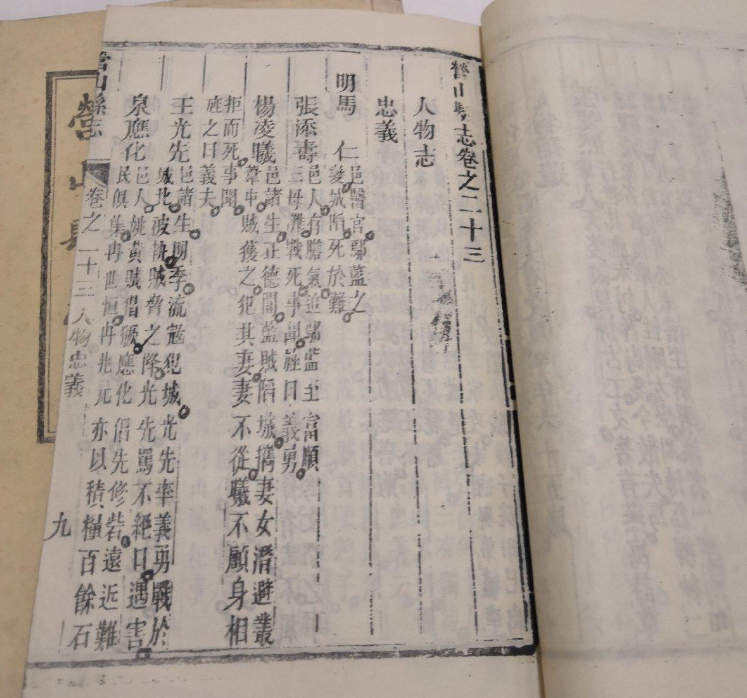 營山縣志卷之二十三
人物志
忠義
明馬 仁
邑醫官鄢藍之
變城陷死於難
張添壽
邑人有膽氣追鄢藍至富順
三毋灘戰死事聞旌曰義勇
楊凌曦
邑諸生正德間藍賊陷城攜妻女潛避叢
葦中賊獲之犯其妻妻不從曦不顧身相
拒而死事聞
旌之曰義夫
王光先
邑諸生明季流寇犯城光先率義勇戰於
城北被執賊脅之降光先罵不絕口遇害
應化
邑人姚黃獗應化倡先修砦遠近難
民俱集冉世恒冉兆元亦以積糧百餘石
營山縣志
卷之二十三 人物忠義
九
營山縣